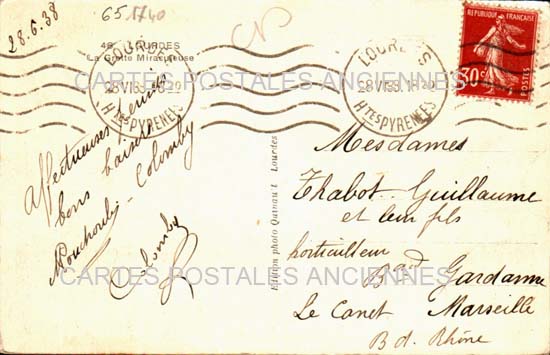 28.6.38
651740
46 LOURDES
La Grotte Miraculeuse
LOURDES
28 VI 38 18-20
HTES PYRENEES
LOURDES
28 VI 38 18-20
HTES PYRENEES
REPUBLIQUE FRANÇAISE
30c
POSTES
CARTES POSTALES ANCIENNES
Affectueuses pensées
bons baisers
Colomby
Colomby
Edition photo Lourdes
Mesdames
Thabot Guillaume
et leur fils
horticulleur
Bard Gardanne
Le Canet Marseille
B d. Rhône
CARTES POSTALES ANCIENNES